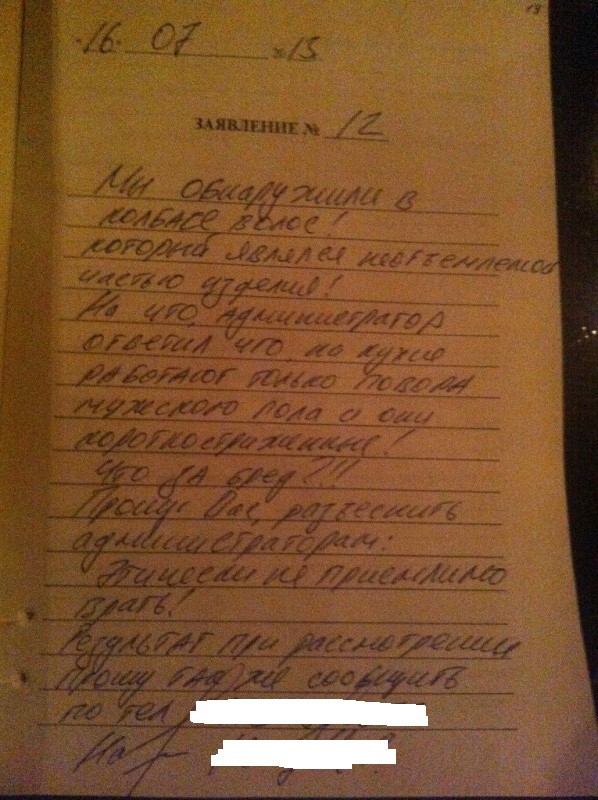 16. 07 13
ЗАЯВЛЕНИЕ № 12
Мы обнаружили в
колбасе волос!
который являлся неотъемлемой
частью изделия!
На что, администратор
ответил что, на кухне
работают только повора
мужского пола и они
короткостриженные!
Что за бред?!!
Прошу Вас, разъеснить
администраторам:
Этически не приемлимо
врать!
Результат при рассмотрении
прошу так же сообщить
по тел